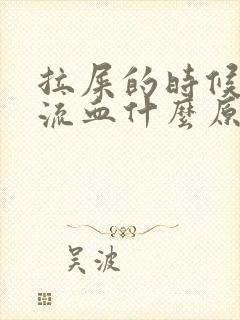 拉屎的時候
流血什麼原
吴波